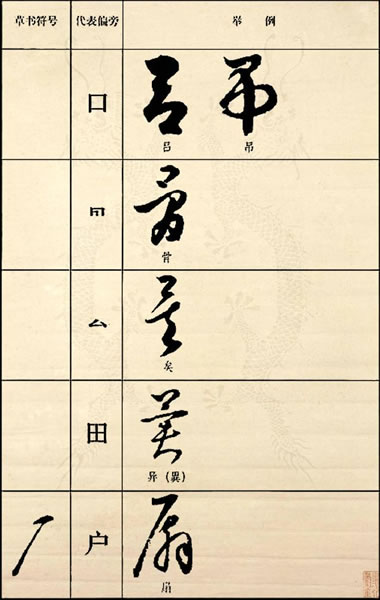 草书符号 代表偏旁 举 例
口 吕 吊
骨
厶 矣
田 异(異)
户 扇